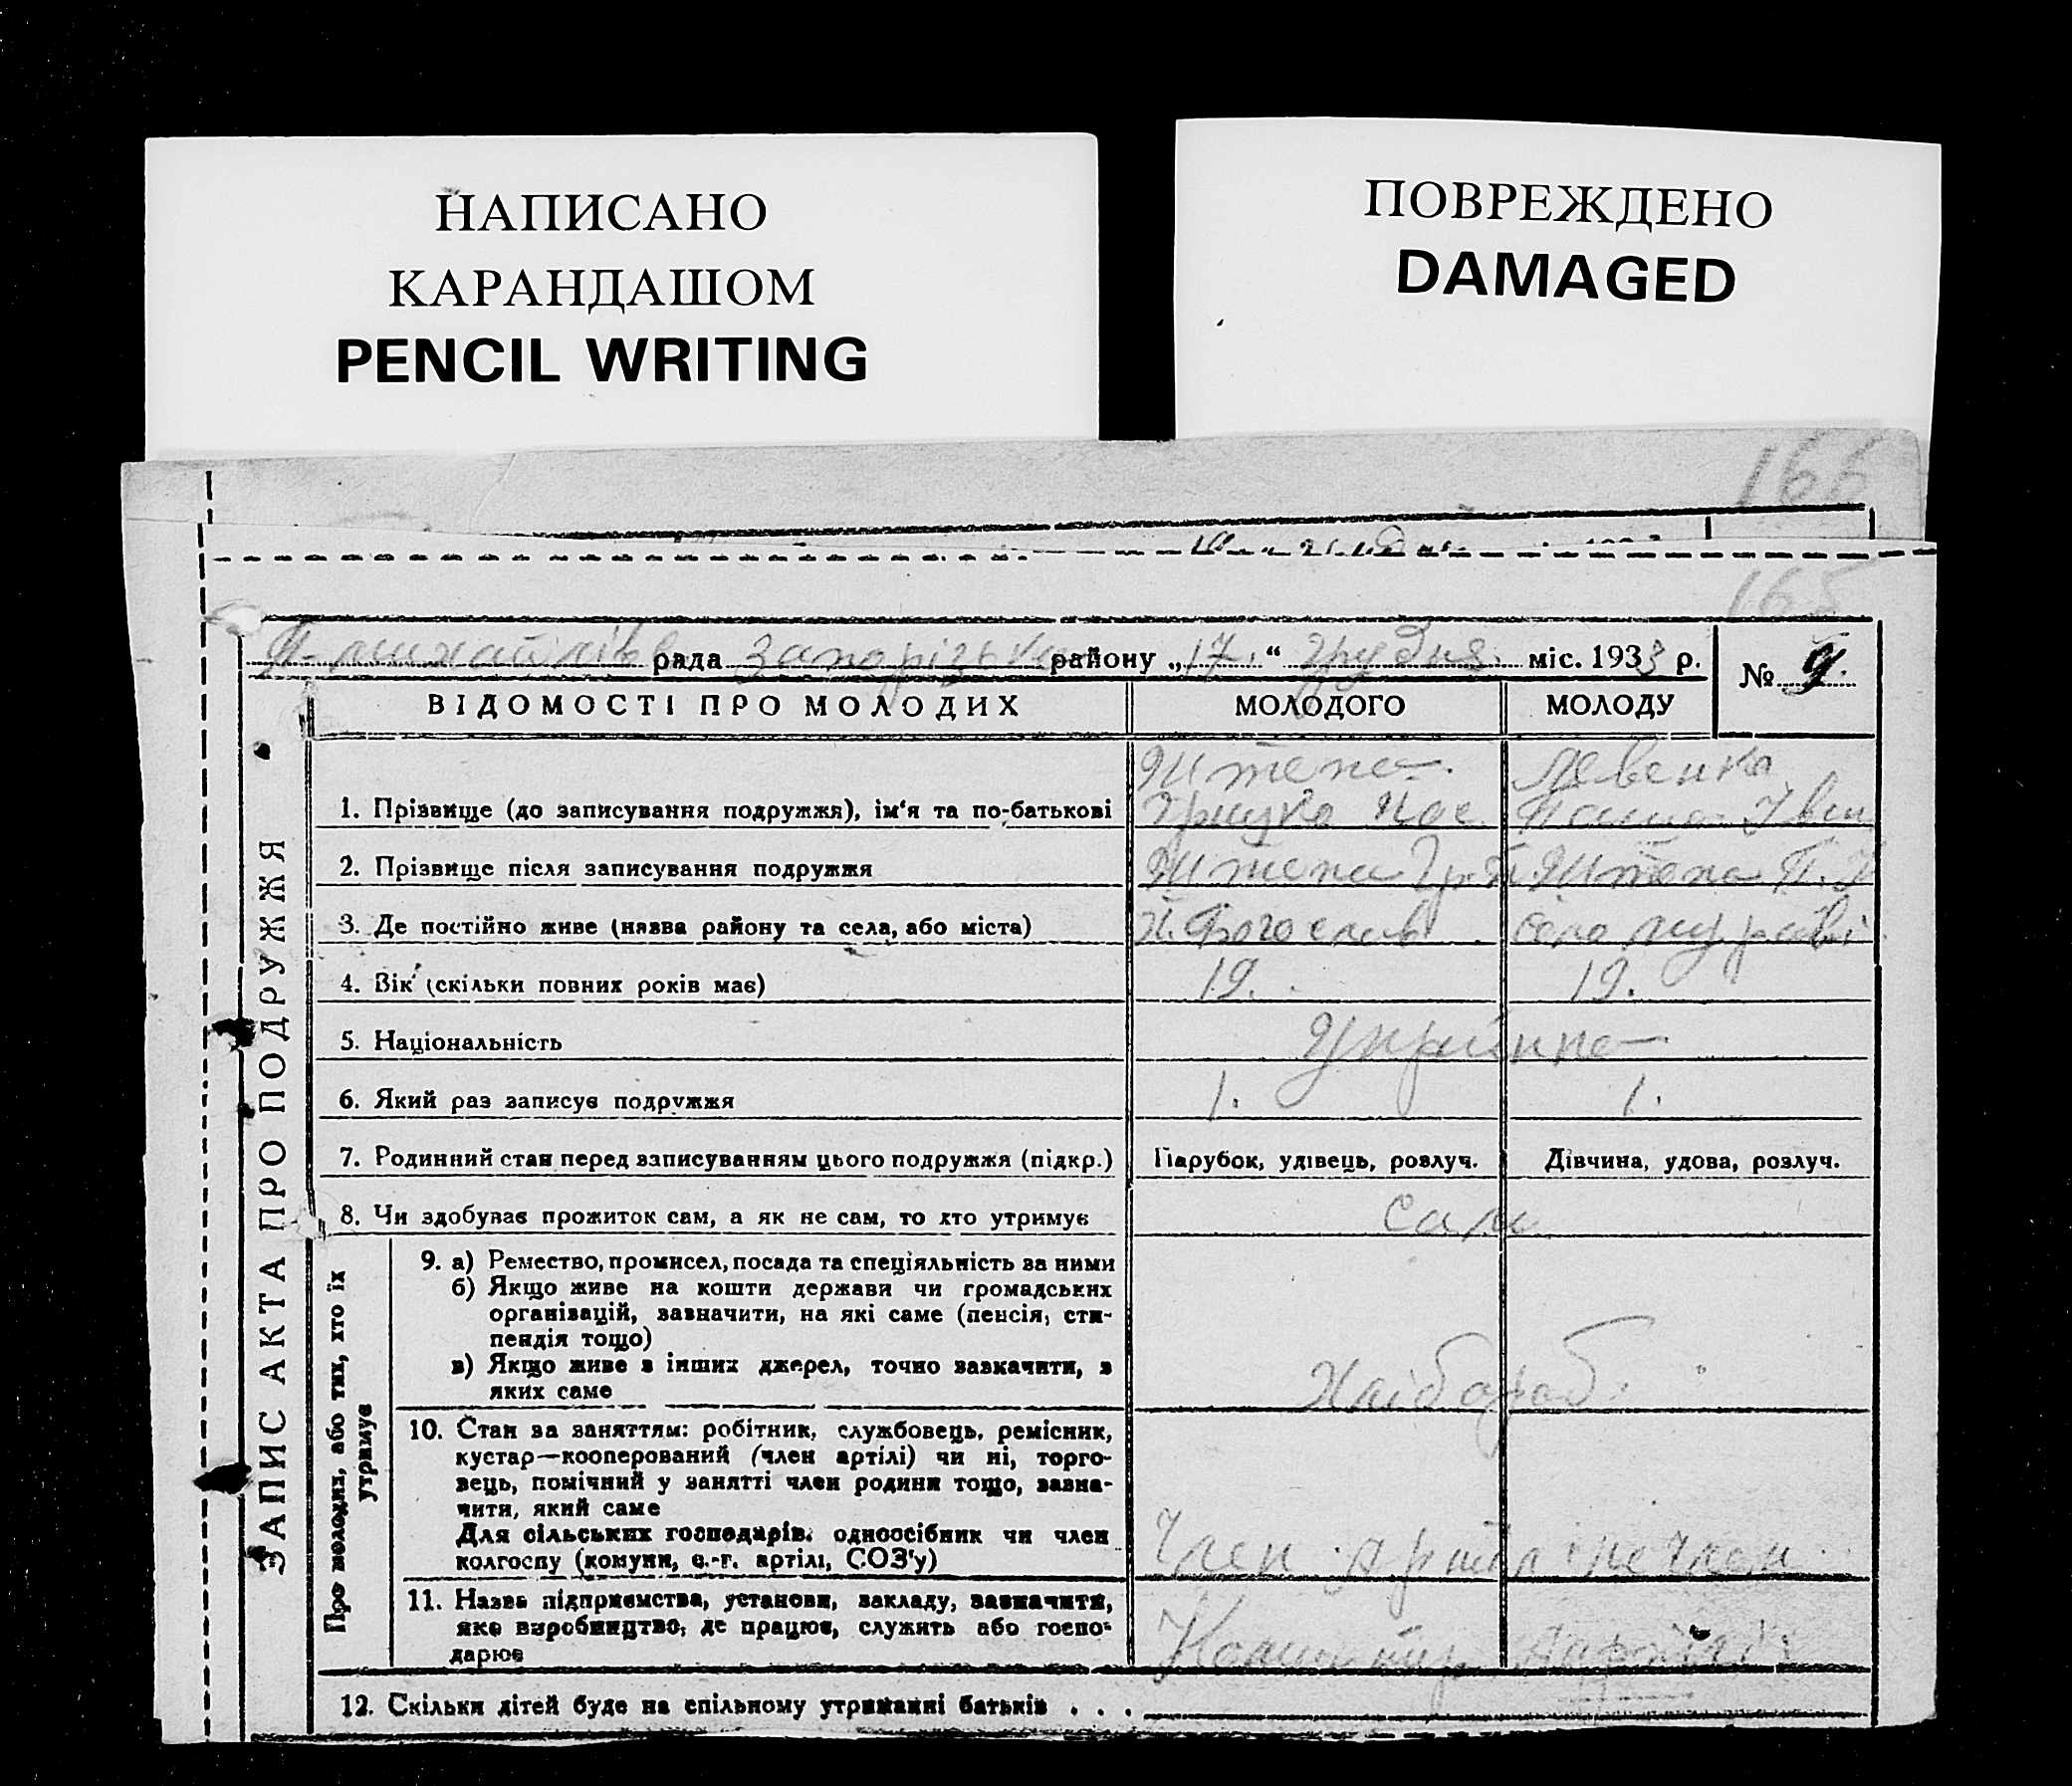 НАПИСАНО
КАРАНДАШОМ
PENCIL WRITING
ПОВРЕЖДЕНО
DAMAGED
166
165
рада Запорізька району „17.“ грудня міс. 1933 р.
№ 9.
ВІДОМОСТІ ПРО МОЛОДИХ МОЛОДОГО МОЛОДУ
ЗАПИС АКТА ПРО ПОДРУЖЖЯ
Левенка
1. Прізвище (до записування подружжя), ім‘я та по-батькові Грицко Іван
2. Прізвище після записування подружжя
3. Де постійно живе (назва району та села, або міста) село
4. Вік (скільки повних років має) 19. 19.
5. Національність
6. Який раз записує подружжя 1. 1.
7. Родинний стан перед записуванням цього подружжя (підкр.) Парубок, удівець, розлуч. Дівчина, удова, розлуч.
8. Чи здобуває прожиток сам, а як не сам, то хто утримує сам
Про молодих, або тих, хто їх утримує
9. а) Ремество, промисел, посада та спеціяльність за ними
б) Якщо живе на кошти держави чи громадських
організацій, зазначити, на які саме (пенсія, сти-
пендія тощо)
в) Якщо живе з інших джерел, точно зазначити, з
яких саме
Хлібороб
10. Стан за заняттям: робітник, службовець, ремісник,
кустар—кооперований (член артілі) чи ні, торго-
вець, помічний у занятті член родини тощо, зазна-
чити, який саме
Для сільських господарів: одноосібник чи член
колгоспу (комуни, с.-г. артілі, СОЗ'у)
Член артілі не член
11. Назва підприємства, установи, закладу, зазначити,
яке виробництво, де працює, служить або госпо-
дарює
12. Скільки дітей буде на спільному утриманні батьків . . .